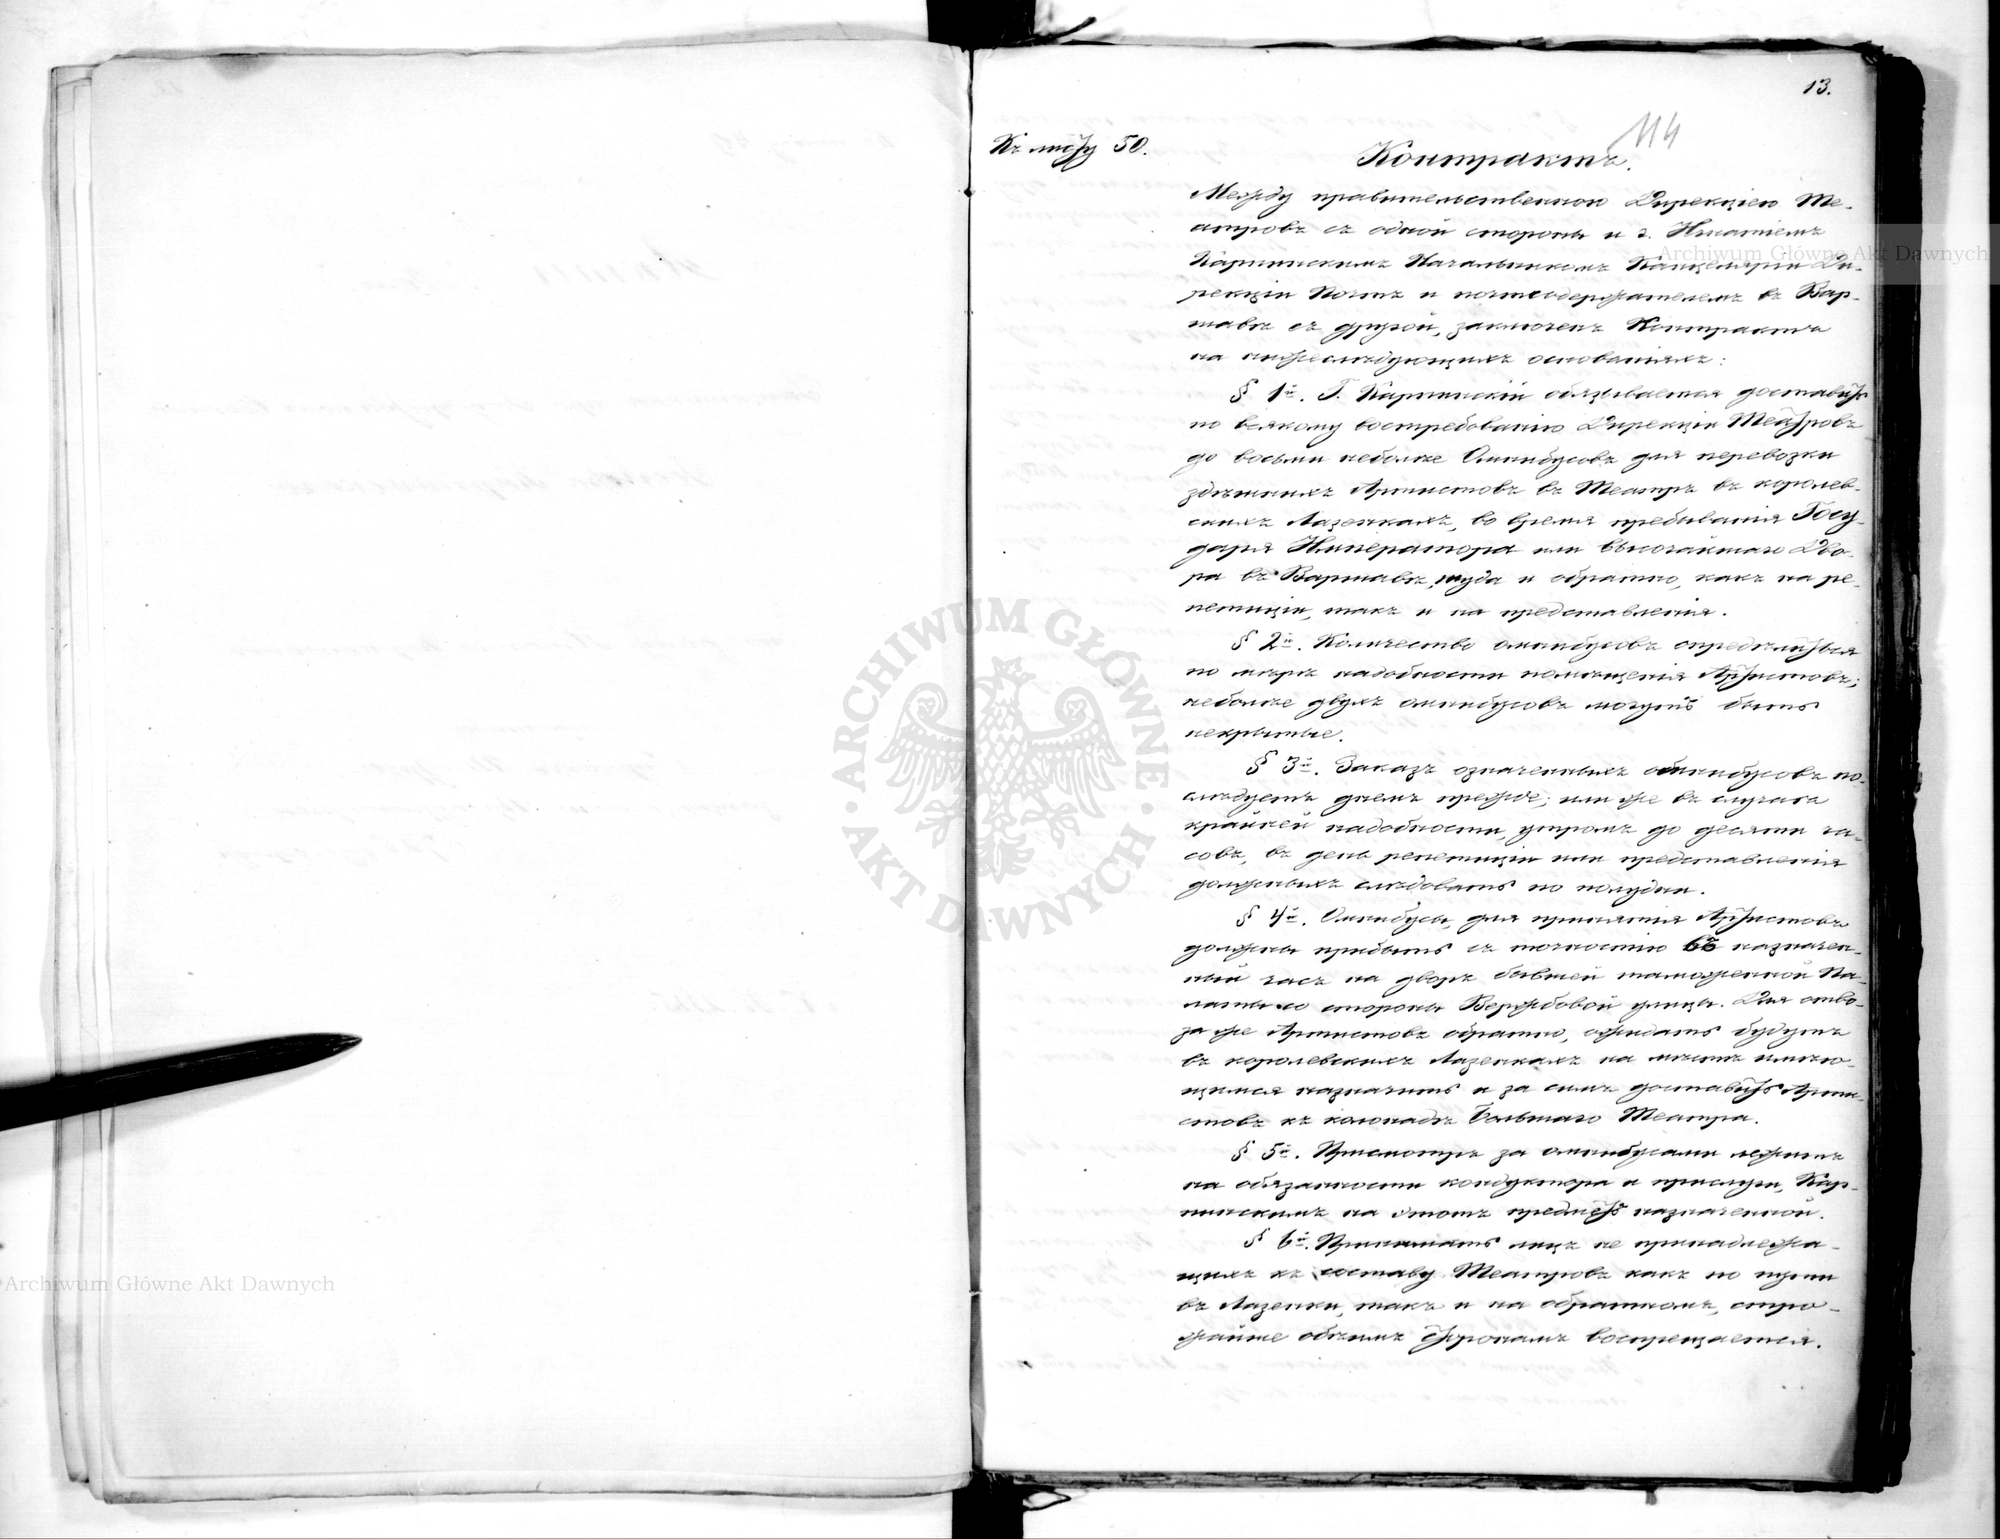 13.
114
Къ листу 50.
Контрактъ.
Между правительственною Дирекціею Те-
атровъ съ одной стороны и г. Игнатіемъ
Карпинскимъ Начальникомъ Канцеляріи Ди-
рекціи Почтъ и почтсодержателемъ въ Вар-
шавѣ съ другой, заключенъ Контрактъ
на нижеслѣдующихъ основаніяхъ:
§ 1й. Г. Карпинскій обязывается доставить
по всякому востребованію Дирекціи Театровъ
до восьми неболѣе Омнибусовъ для перевозки
здѣшнихъ Артистовъ въ Театръ въ королев-
скихъ Лазенкахъ, во время пребыванія Госу-
даря Императора или Высочайшаго Дво-
ра въ Варшавѣ, туда и обратно, какъ на ре-
петиціи, такъ и на представленія.
§ 2й. Количество омнибусовъ опредѣлится
по мѣрѣ надобности помѣщенія Артистовъ;
неболѣе двухъ омнибусовъ могутъ быть
некрытые.
§ 3й. Заказъ означенныхъ омнибусовъ по-
слѣдуетъ днемъ прежде; или же въ случаѣ
крайней надобности, утромъ до десяти ча-
совъ, въ день репетиціи или представленія
должныхъ слѣдовать по полудни.
§ 4й. Омнибусы, для принятія Артистовъ
должны прибыть съ точностію въ назначен-
ный часъ на дворъ бывшей таможенной Па-
латы со стороны Вержбовой улицы. Для отво-
за же Артистовъ обратно, ожидать будутъ
въ королевскихъ Лазенкахъ на мѣстѣ имѣю-
щимся назначить и за симъ доставить Арти-
стовъ къ колонадѣ Большаго Театра.
§ 5й. Присмотръ за омнибусами лежитъ
на обязанности кондуктора и прислуги, Кар-
пинскимъ на этотъ предметъ назначенной.
§ 6й. Принимать лицъ не принадлежа-
щихъ къ составу Театровъ какъ по пути
въ Лазенки, такъ и на обратномъ, стро-
жайше обѣимъ сторонамъ воспрещается.
ARCHIWUM GŁÓWNE AKT DAWNYCH
Archiwum Główne Akt Dawnych
Archiwum Główne Akt Dawnych